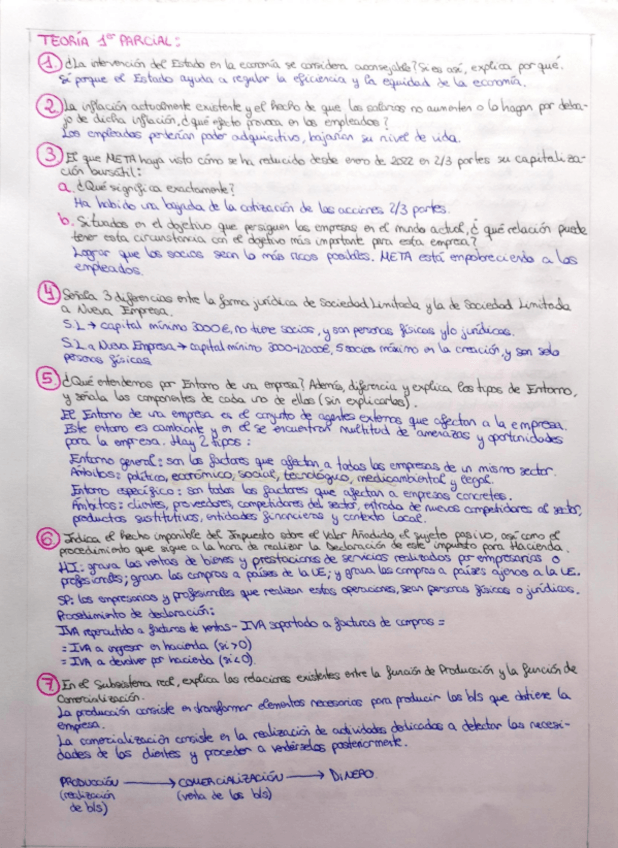 TEORÍA 1er PARCIAL:
① ¿La intervención del Estado en la economía se considera aconsejable? Si es así, explica por qué.
Sí porque el Estado ayuda a regular la eficiencia y la equidad de la economía.
② La inflación actualmente existente y el hecho de que los salarios no aumenten o lo hagan por deba-
jo de dicha inflación, ¿qué efecto provoca en los empleados?
Los empleados perderían poder adquisitivo, bajarían su nivel de vida.
③ El que META haya visto cómo se ha reducido desde enero de 2022 en 2/3 partes su capitaliza-
ción bursátil:
a. ¿Qué significa exactamente?
Ha habido una bajada de la cotización de las acciones 2/3 partes.
b. Situados en el objetivo que persiguen las empresas en el mundo actual, ¿qué relación puede
tener esta circunstancia con el objetivo más importante para esta empresa?
Lograr que los socios sean lo más ricos posibles. META está empobreciendo a los
empleados.
④ Señala 3 diferencias entre la forma jurídica de Sociedad Limitada y la de Sociedad Limitada
a Nueva Empresa.
S.L → capital mínimo 3000€, no tiene socios, y son personas físicas y/o jurídicas.
S.L a Nueva Empresa → capital mínimo 3000-120000€, 5 socios máximo en la creación, y son solo
personas físicas.
⑤ ¿Qué entendemos por Entorno de una empresa? Además, diferencia y explica los tipos de Entorno,
y señala los componentes de cada uno de ellos (sin explicarlos).
El Entorno de una empresa es el conjunto de agentes externos que afectan a la empresa.
Este entorno es cambiante y en él se encuentran multitud de amenazas y oportunidades
para la empresa. Hay 2 tipos:
Entorno general: son los factores que afectan a todas las empresas de un mismo sector.
Ámbitos: político, económico, social, tecnológico, medioambiental y legal.
Entorno específico: son todos los factores que afectan a empresas concretas.
Ámbitos: clientes, proveedores, competidores del sector, entrada de nuevos competidores al sector,
productos sustitutivos, entidades financieras y contexto local.
⑥ Indica el hecho imponible del Impuesto sobre el Valor Añadido, el sujeto pasivo, así como el
procedimiento que sigue a la hora de realizar la Declaración de este impuesto para Hacienda.
HI: grava las ventas de bienes y prestaciones de servicios realizados por empresarios o
profesionales; grava las compras a países de la UE; y grava las compras a países ajenos a la UE.
SP: los empresarios y profesionales que realizan estas operaciones, sean personas físicas o jurídicas.
Procedimiento de declaración:
IVA repercutido a facturas de ventas - IVA soportado a facturas de compras =
= IVA a ingresar en hacienda (si >0)
= IVA a devolver por hacienda (si <0).
⑦ En el Subsistema real, explica las relaciones existentes entre la función de Producción y la función de
Comercialización.
La producción consiste en transformar elementos necesarios para producir los b/s que obtiene la
empresa.
La comercialización consiste en la realización de actividades dedicadas a detectar las necesi-
dades de los clientes y proceder a vendérselos posteriormente.
PRODUCCIÓN → COMERCIALIZACIÓN → DINERO.
(realización (venta de los b/s)
de b/s)